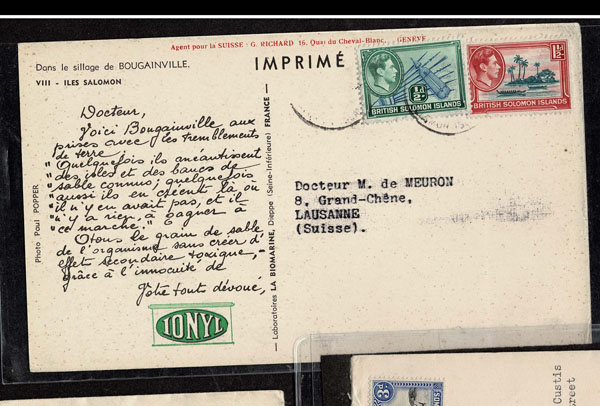 Agent pour la SUISSE - G. RICHARD 16, Quai du Cheval-Blanc, GENÈVE
Dans le sillage de BOUGAINVILLE.
VIII - ILES SALOMON
IMPRIMÉ
½d
BRITISH SOLOMON ISLANDS
1½d
BRITISH SOLOMON ISLANDS
Docteur,
Voici Bougainville aux
prises avec les tremblements
de terre :
" Quelquefois ils anéantissent
" des isles et des bancs de
" sable connus; quelquefois
" aussi ils en créent là où
" il n'y en avait pas, et il
" n'y a rien à gagner à
" ce marché. "
Otons le grain de sable
de l'organisme sans créer d'
effet secondaire toxique,
grâce à l'innocuité de
Votre tout dévoué,
IONYL
Photo Paul POPPER
— Laboratoires LA BIOMARINE, Dieppe (Seine-Inférieure) FRANCE —
Docteur M. de MEURON
8, Grand-Chêne,
LAUSANNE
(Suisse).
3d
Custis
reet